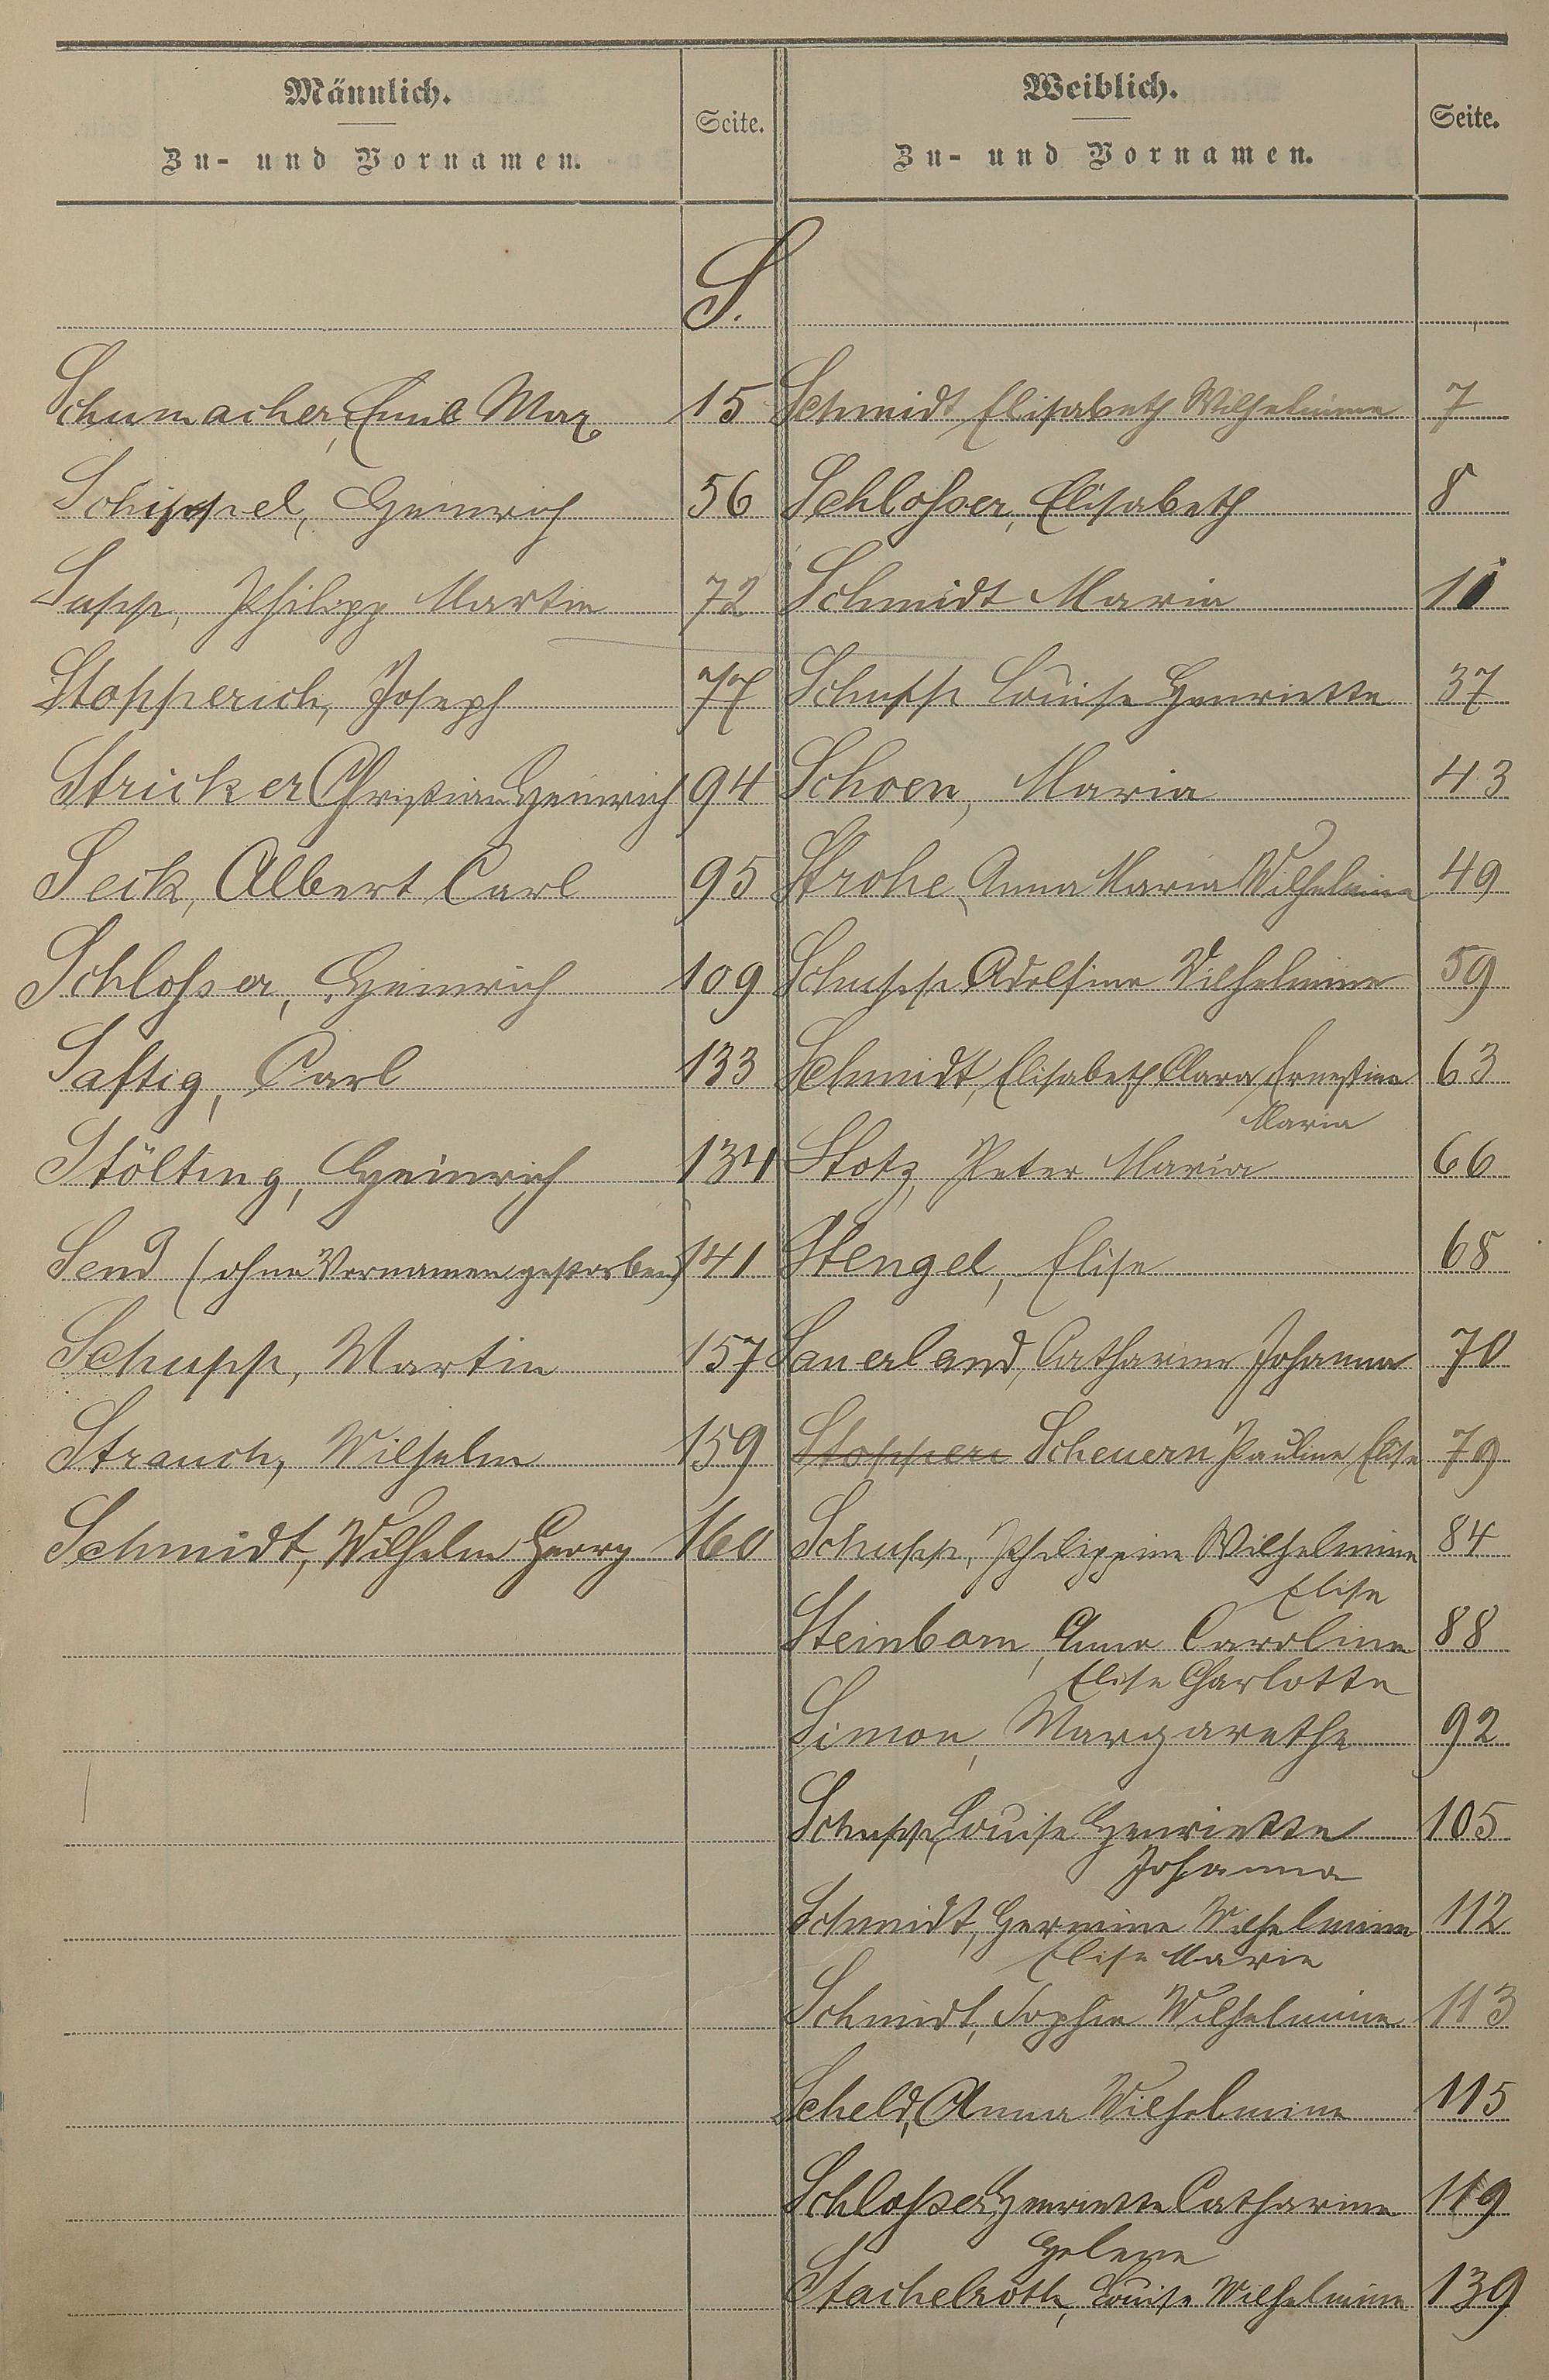 Männlich.
Zu- und Vornamen.
Seite.
Weiblich.
Zu- und Vornamen.
Seite.
S.
Schumacher, Emil Max 15
Schippel, Heinrich 56
Supp, Philipp Martin 72
Stopperich, Joseph 77
Stricker Christian Heinrich 94
Seck, Albert Carl 95
Schlosser, Heinrich 109
Saftig, Carl 133
Stölting, Heinrich 134
Send (ohne Vornamen gestorben) 141
Schupp, Martin 157
Strauch, Wilhelm 159
Schmidt, Wilhelm Georg 160
Schmidt Elisabeth Wilhelmine 7
Schlosser, Elisabeth 8
Schmidt Maria 11
Schupp Louise Henriette 37
Schoen, Maria 43
Strohe, Anna Maria Wilhelmine 49
Schupp Adolfine Wilhelmine 59
Schmidt, Elisabeth Clara Ernestine 63
Maria
Stotz, Peter Maria 66
Stengel, Elise 68
Sauerland, Catharine Johanna 70
Stopperi Scheuern Pauline Elise 79
Schupp, Philippine Wilhelmine 84
Elise
Steinborn, Anna Caroline 88
Elise Charlotte
Simon, Margarethe 92
Schupp, Louise Henriette 105
Johanna
Schmidt, Hermine Wilhelmine 112
Elise Marie
Schmidt, Sophie Wilhelmine 113
Scheld, Anna Wilhelmine 115
Schlosser, Henriette Catharine 119
Helene
Stachelroth, Louise Wilhelmine 139